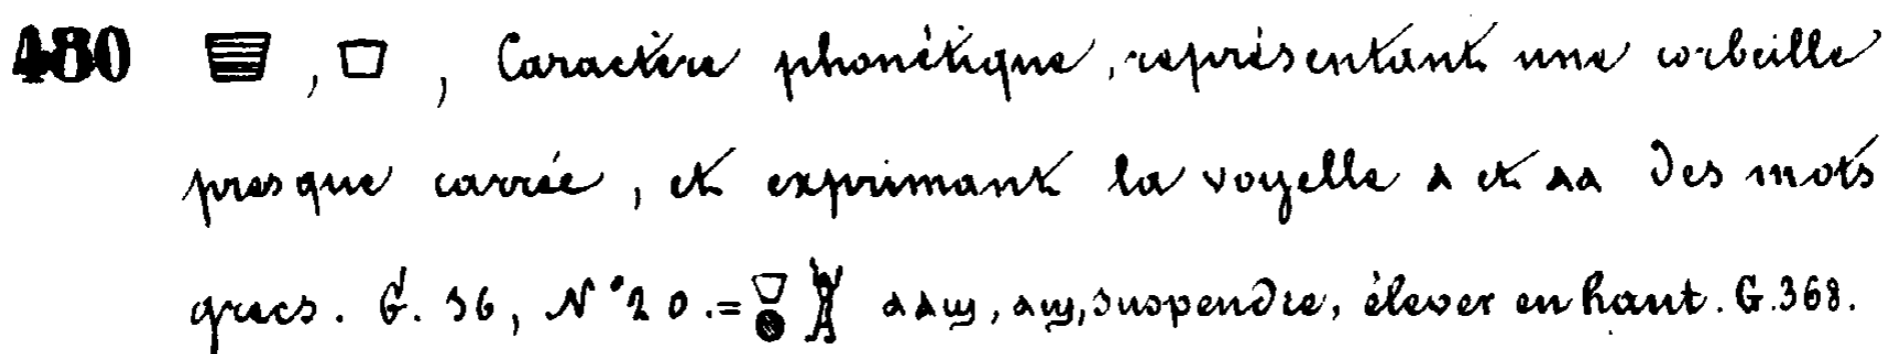 480 , , Caractère phonétique, représentant une corbeille
presque carrée, et exprimant la voyelle ⲁ et ⲁⲁ des mots
grecs. G. 36, N° 20. = ⲁⲁϣ, ⲁϣ, suspendre, élever en haut. G. 368.